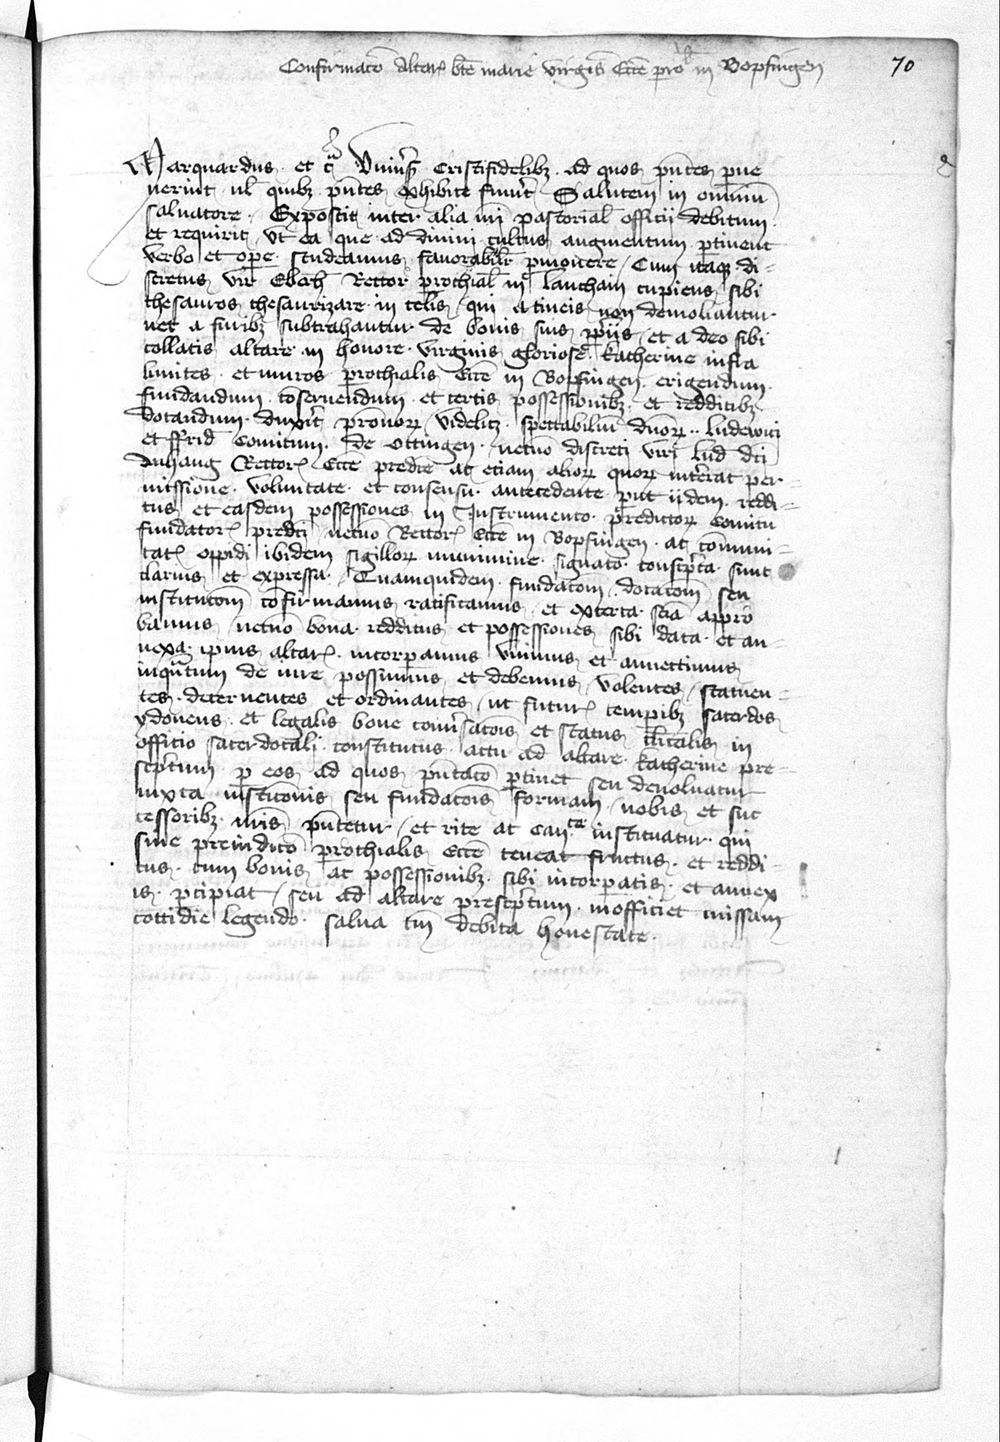 Confirmaco Altar bte marie virginis Ecce in Bopfingen
70
Marquardus et Univs Cristifidelibz ad quos pntes pue
nerint ul quibz pntes exhibite funt Salutem in omnium
saluatore Exposcit inter alia nri pastorial officii debitum
et requirit ut ea que ad divini cultus augmentum ptinent
verbo et ope studeamus favorabilr pmouere Cum itaqz di-
scretus vir Eberh Rector prochial in Laucham cupiens sibi
thesauros thesaurizare in celis qui a tineis non demoliantur
nec a furibz subtrahantur de bonis suis ppiis et a deo sibi
collatis altare in honore virginis gloriose katherine infra
limites et muros prochialis Ecce in Bopfingen erigendum
fundandum coseruendum et certis possessionibz et redditibz
dotandum duxit pronorr videlitz spectabilium dnorr Ludewici
et ffrid Comitum de Ottingen necno discreti viri Lud dci
Anhang Rectoris Ecce predce ac etiam aliorr quorr interat per-
missione voluntate et consensu antecedente put iidem reddi-
tus et easdem possessiones in Instrumento predictorr Comitu
fundator predci necno Rector Ecce in Bopfingen ac comuni-
tat oppidi ibidem sigillorr munimine signato conscpta sunt
clarius et expressu Quamquidem fundacom dotacom seu
institucom cofirmamus ratificamus et ex certa scia appro
bamus necno bona redditus et possessiones sibi data et an-
nexa ipius altar incorpamus unimus et annectimus
inqutum de iure possumus et debemus volentes statuen-
tes decernentes et ordinantes ut futur tempibz sacerdos
ydoneus et legalis bone conusacois et status clicalis in
officio sacerdotali constitutus actu ad altare katherine pre-
scptum p eos ad quos pntaco ptinet seu deuoluatur
iuxta institucois seu fundacois formam nobis et suc
cessoribz nris pntetur et rite ac canice instituatur qui
sine preiudico prochialis Ecce teneat fructus et reddi-
tus cum bonis ac possessionibz sibi incorpatis et annex
is pcipiat seu ad altare prescptum inofficiet missam
cottidie legendo salua tm debita honestate